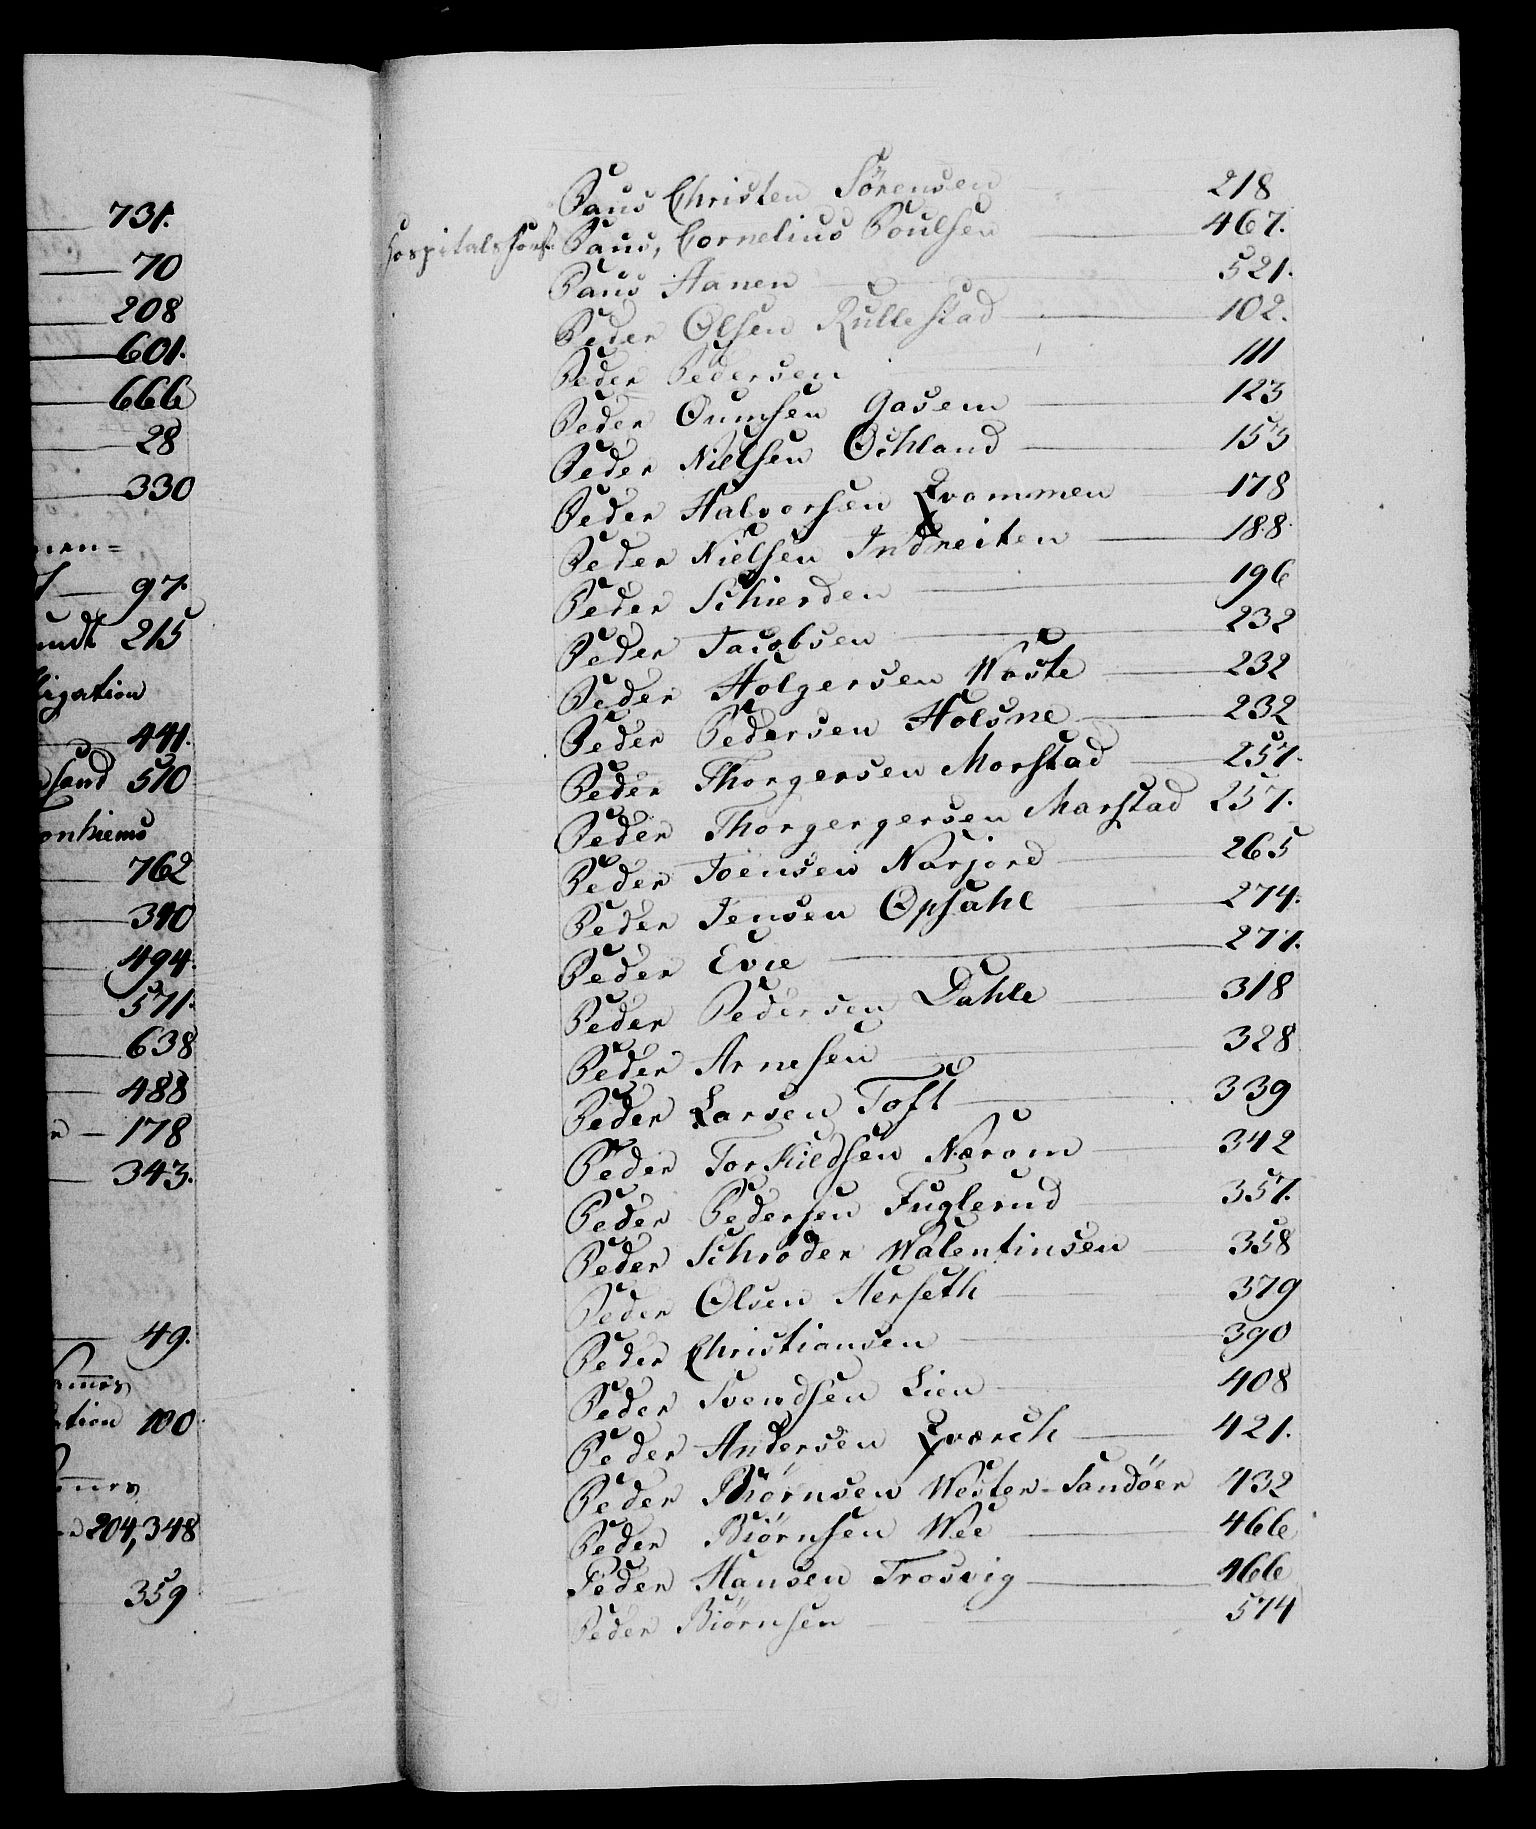 731.
70
208
601.
666
28
330
97.
215
441.
510
762
390
494.
571.
638
488
178
343.
49.
100
204,348
359
Paus Christen Sörensen 218
Paus, Cornelius Poulsen 467.
Paus Hanen 521.
Peder Olsen Rullestad 102.
Peder Pedersen 111
Peder Gumsen Gasem 123
Peder Nielsen Öchland 153
Peder Halvorsen Qvammen 178
Peder Nielsen Indreiten 188
Peder Schierden 196
Peder Jacobsen 232
Peder Holgersen Waste 232
Peder Pedersen Holsne 232
Peder Thorgersen Morstad 257.
Peder Thorgergersen Marstad 257.
Peder Joensen Narjord 265
Peder Jensen Opsahl 274.
Peder Evie 277.
Peder Pedersen Dahle 318
Peder Arnesen 328
Peder Larsen Toft 339
Peder Torkildsen Nærom 342
Peder Pedersen Fuglerud 357.
Peder Schröder Walentinsen 358
Peder Olsen Herseth 379
Peder Christiansen 390
Peder Svendsen Lien 408
Peder Andersen Qværch 421.
Peder Biörnsen Wester-Sandöer 432
Peder Biörnsen Wee 466
Peder Hansen Trosvig 466
Peder Biörnsen 574